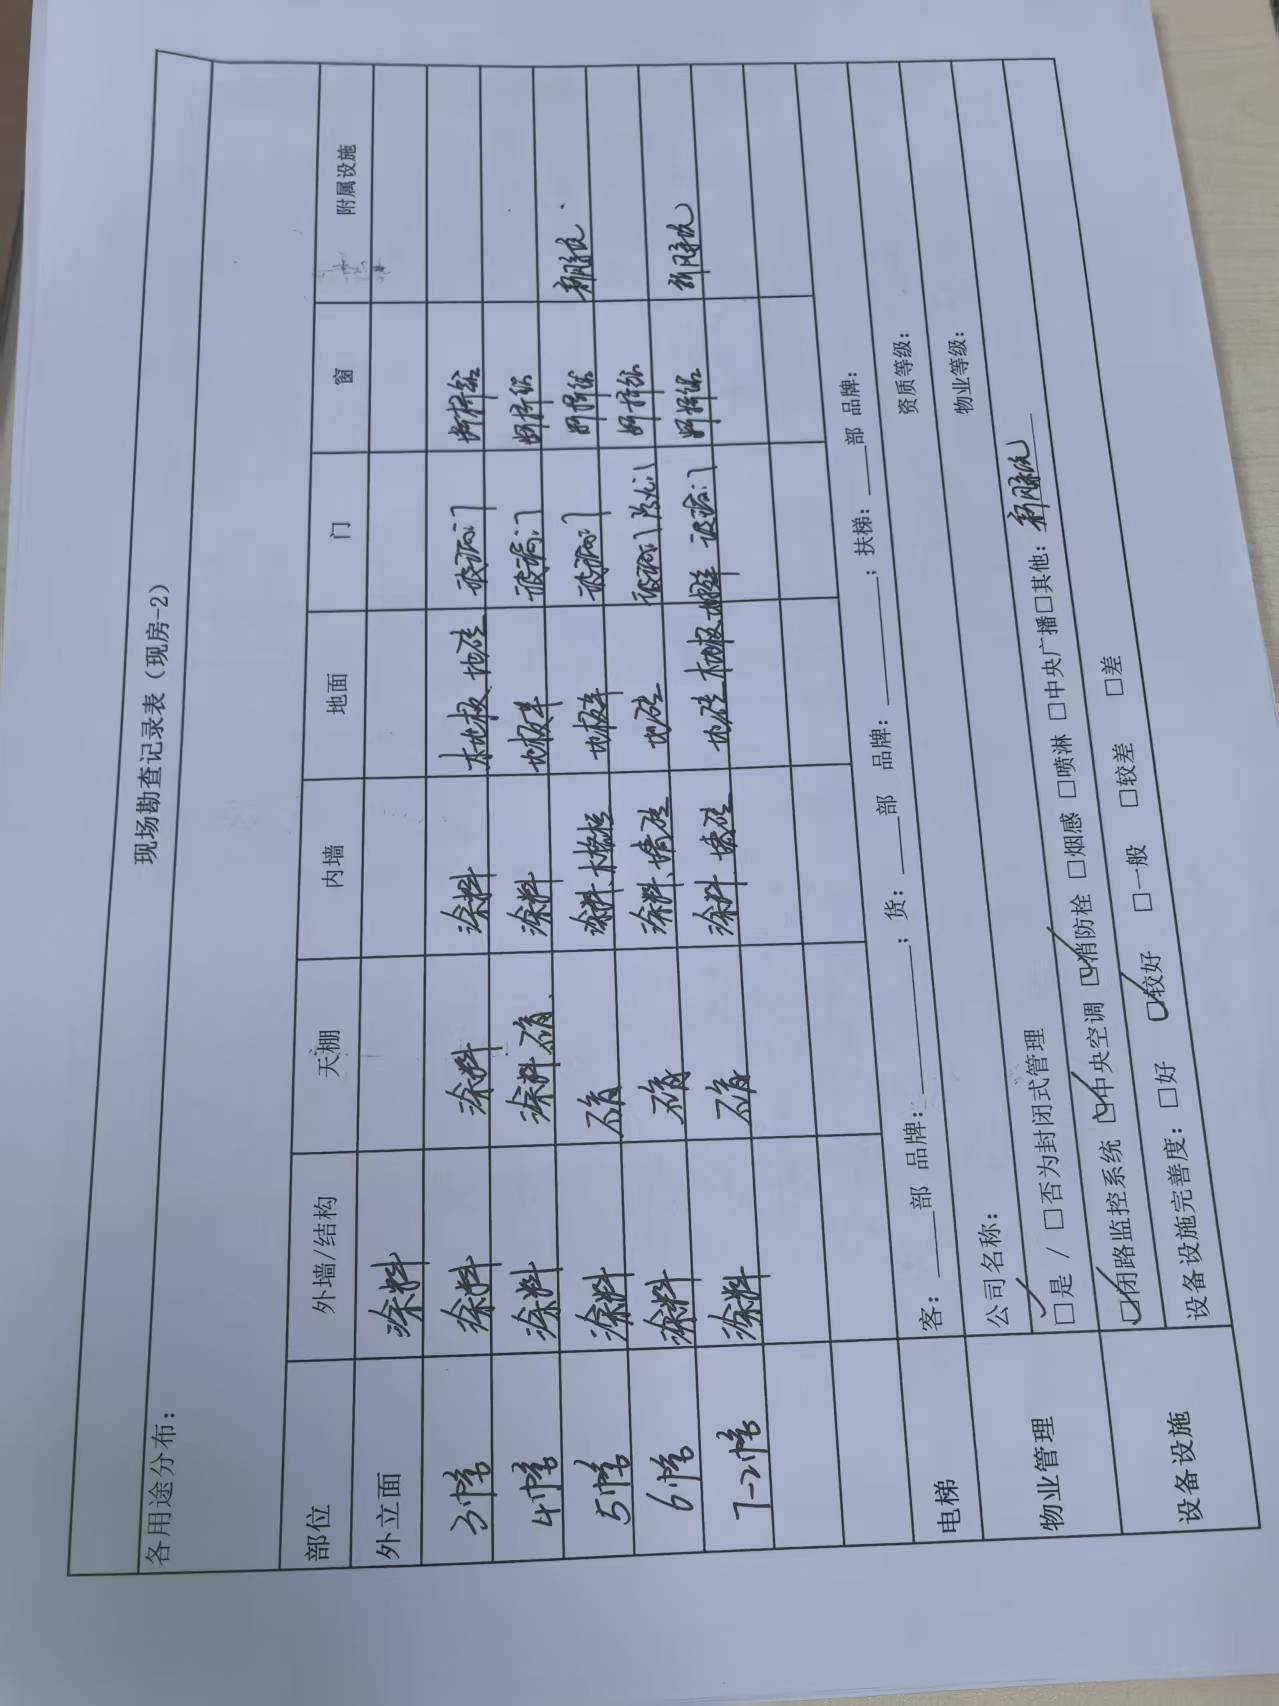 现场勘查记录表（现房-2）
各用途分布：
部位 外墙/结构 天棚 内墙 地面 门 窗 附属设施
外立面 涂料
3幢 涂料 涂料 涂料 木地板、地砖 玻璃门 断桥铝
4幢 涂料 涂料 石膏 涂料 地板革 玻璃门 断桥铝
5幢 涂料 石膏 涂料、木格栅 地板革 玻璃门 断桥铝 新风系统
6幢 涂料 石膏 涂料、墙砖 地砖 玻璃门 断桥铝
7-2幢 涂料 石膏 涂料 墙砖 地砖 木地板 玻璃门 断桥铝 新风系统
电梯 客：____部 品牌：________；货：____部 品牌：________；扶梯：____部 品牌：
物业管理 公司名称： 资质等级：
☑是 / □否为封闭式管理 物业等级：
设备设施 ☑闭路监控系统 ☑中央空调 ☑消防栓 □烟感 □喷淋 □中央广播 □其他：新风系统
设备设施完善度：□好 ☑较好 □一般 □较差 □差